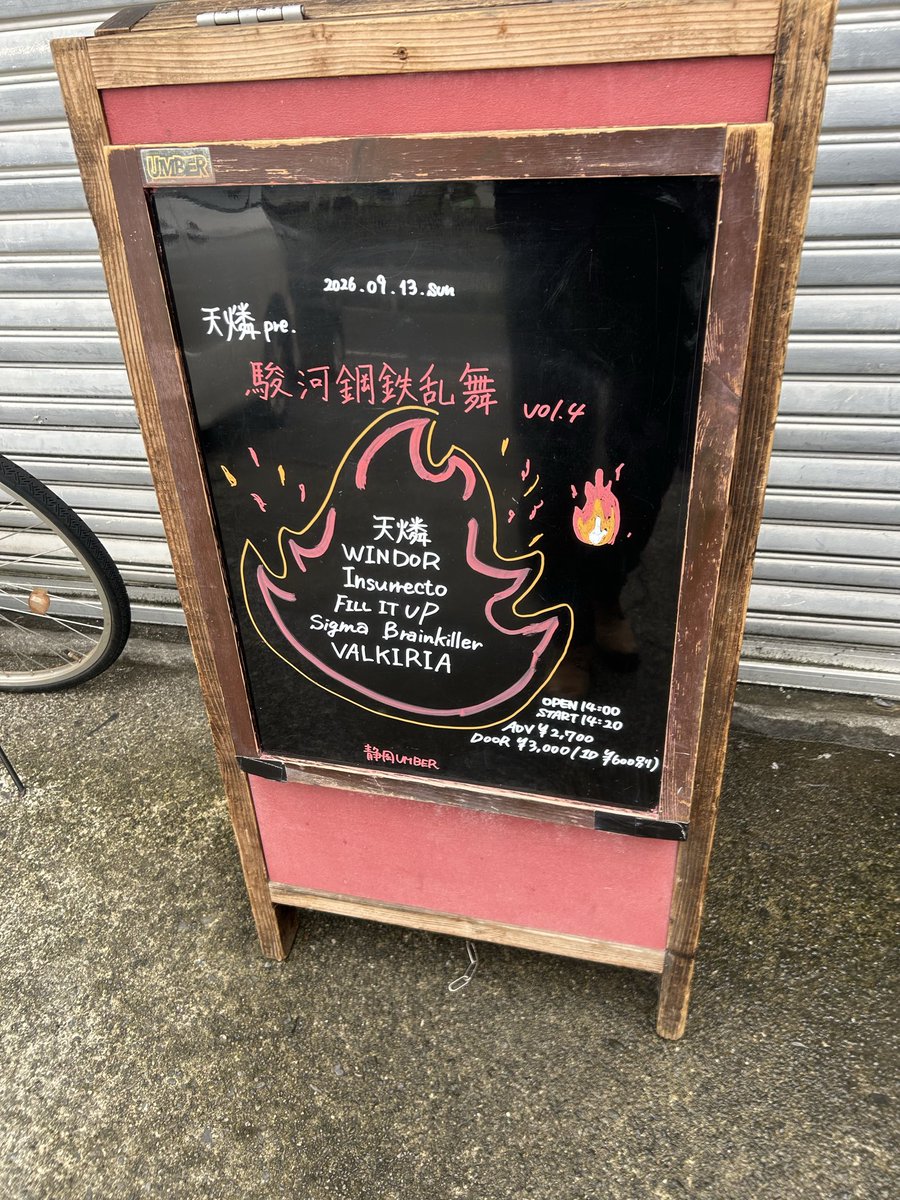 UMBER
2026.09.13.sun
天燐pre.
駿河鋼鉄乱舞 vol.4
天燐
WINDOR
Insurrecto
FILL IT UP
Sigma Brainkiller
VALKIRIA
OPEN 14:00
START 14:20
ADV ¥2,700
DOOR ¥3,000 (1D ¥600別)
静岡UMBER